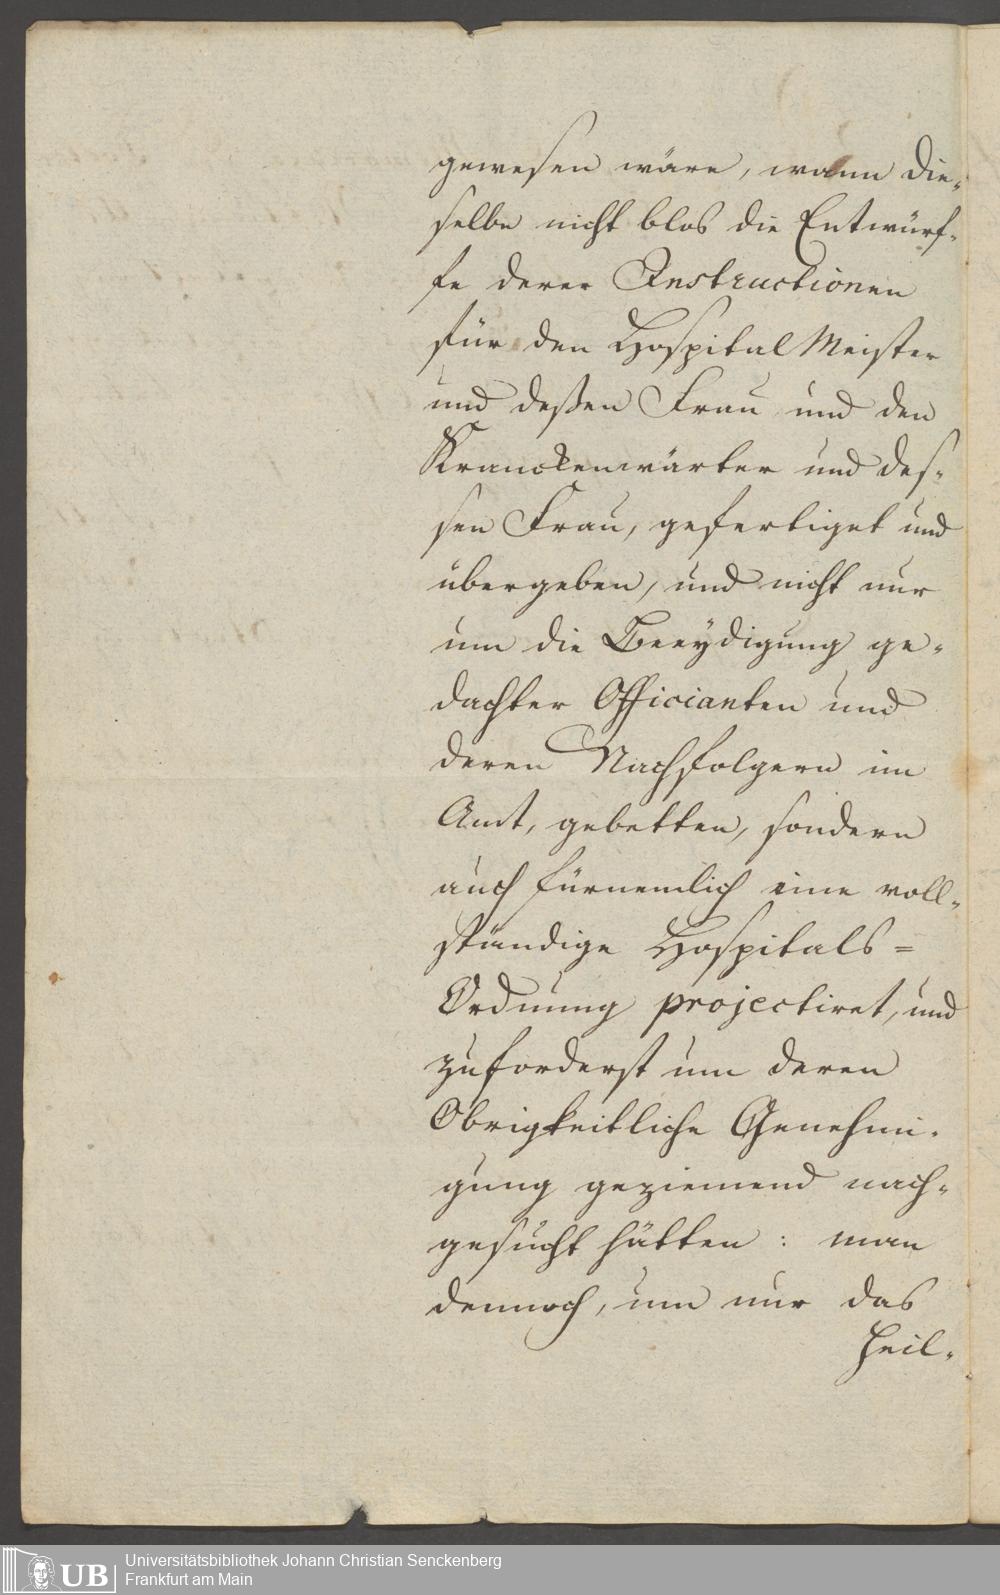 gewesen wäre, wann die-
selbe nicht blos die Entwürf-
fe derer Instructionen
für den Hospital Meister
und deßen Frau und den
Kranckenwärter und des-
sen Frau, gefertiget und
übergeben, und nicht nur
um die Beeydigung ge-
dachter Officianten und
deren Nachfolgern im
Amt, gebetten, sondern
auch fürnemlich eine voll-
ständige Hospitals=
Ordnung projectiret, und
zuforderst um deren
Obrigkeitliche Genehmi-
gung geziemend nach-
gesucht hätten: man
dennoch, um nur das
heil-
UB Universitätsbibliothek Johann Christian Senckenberg
Frankfurt am Main